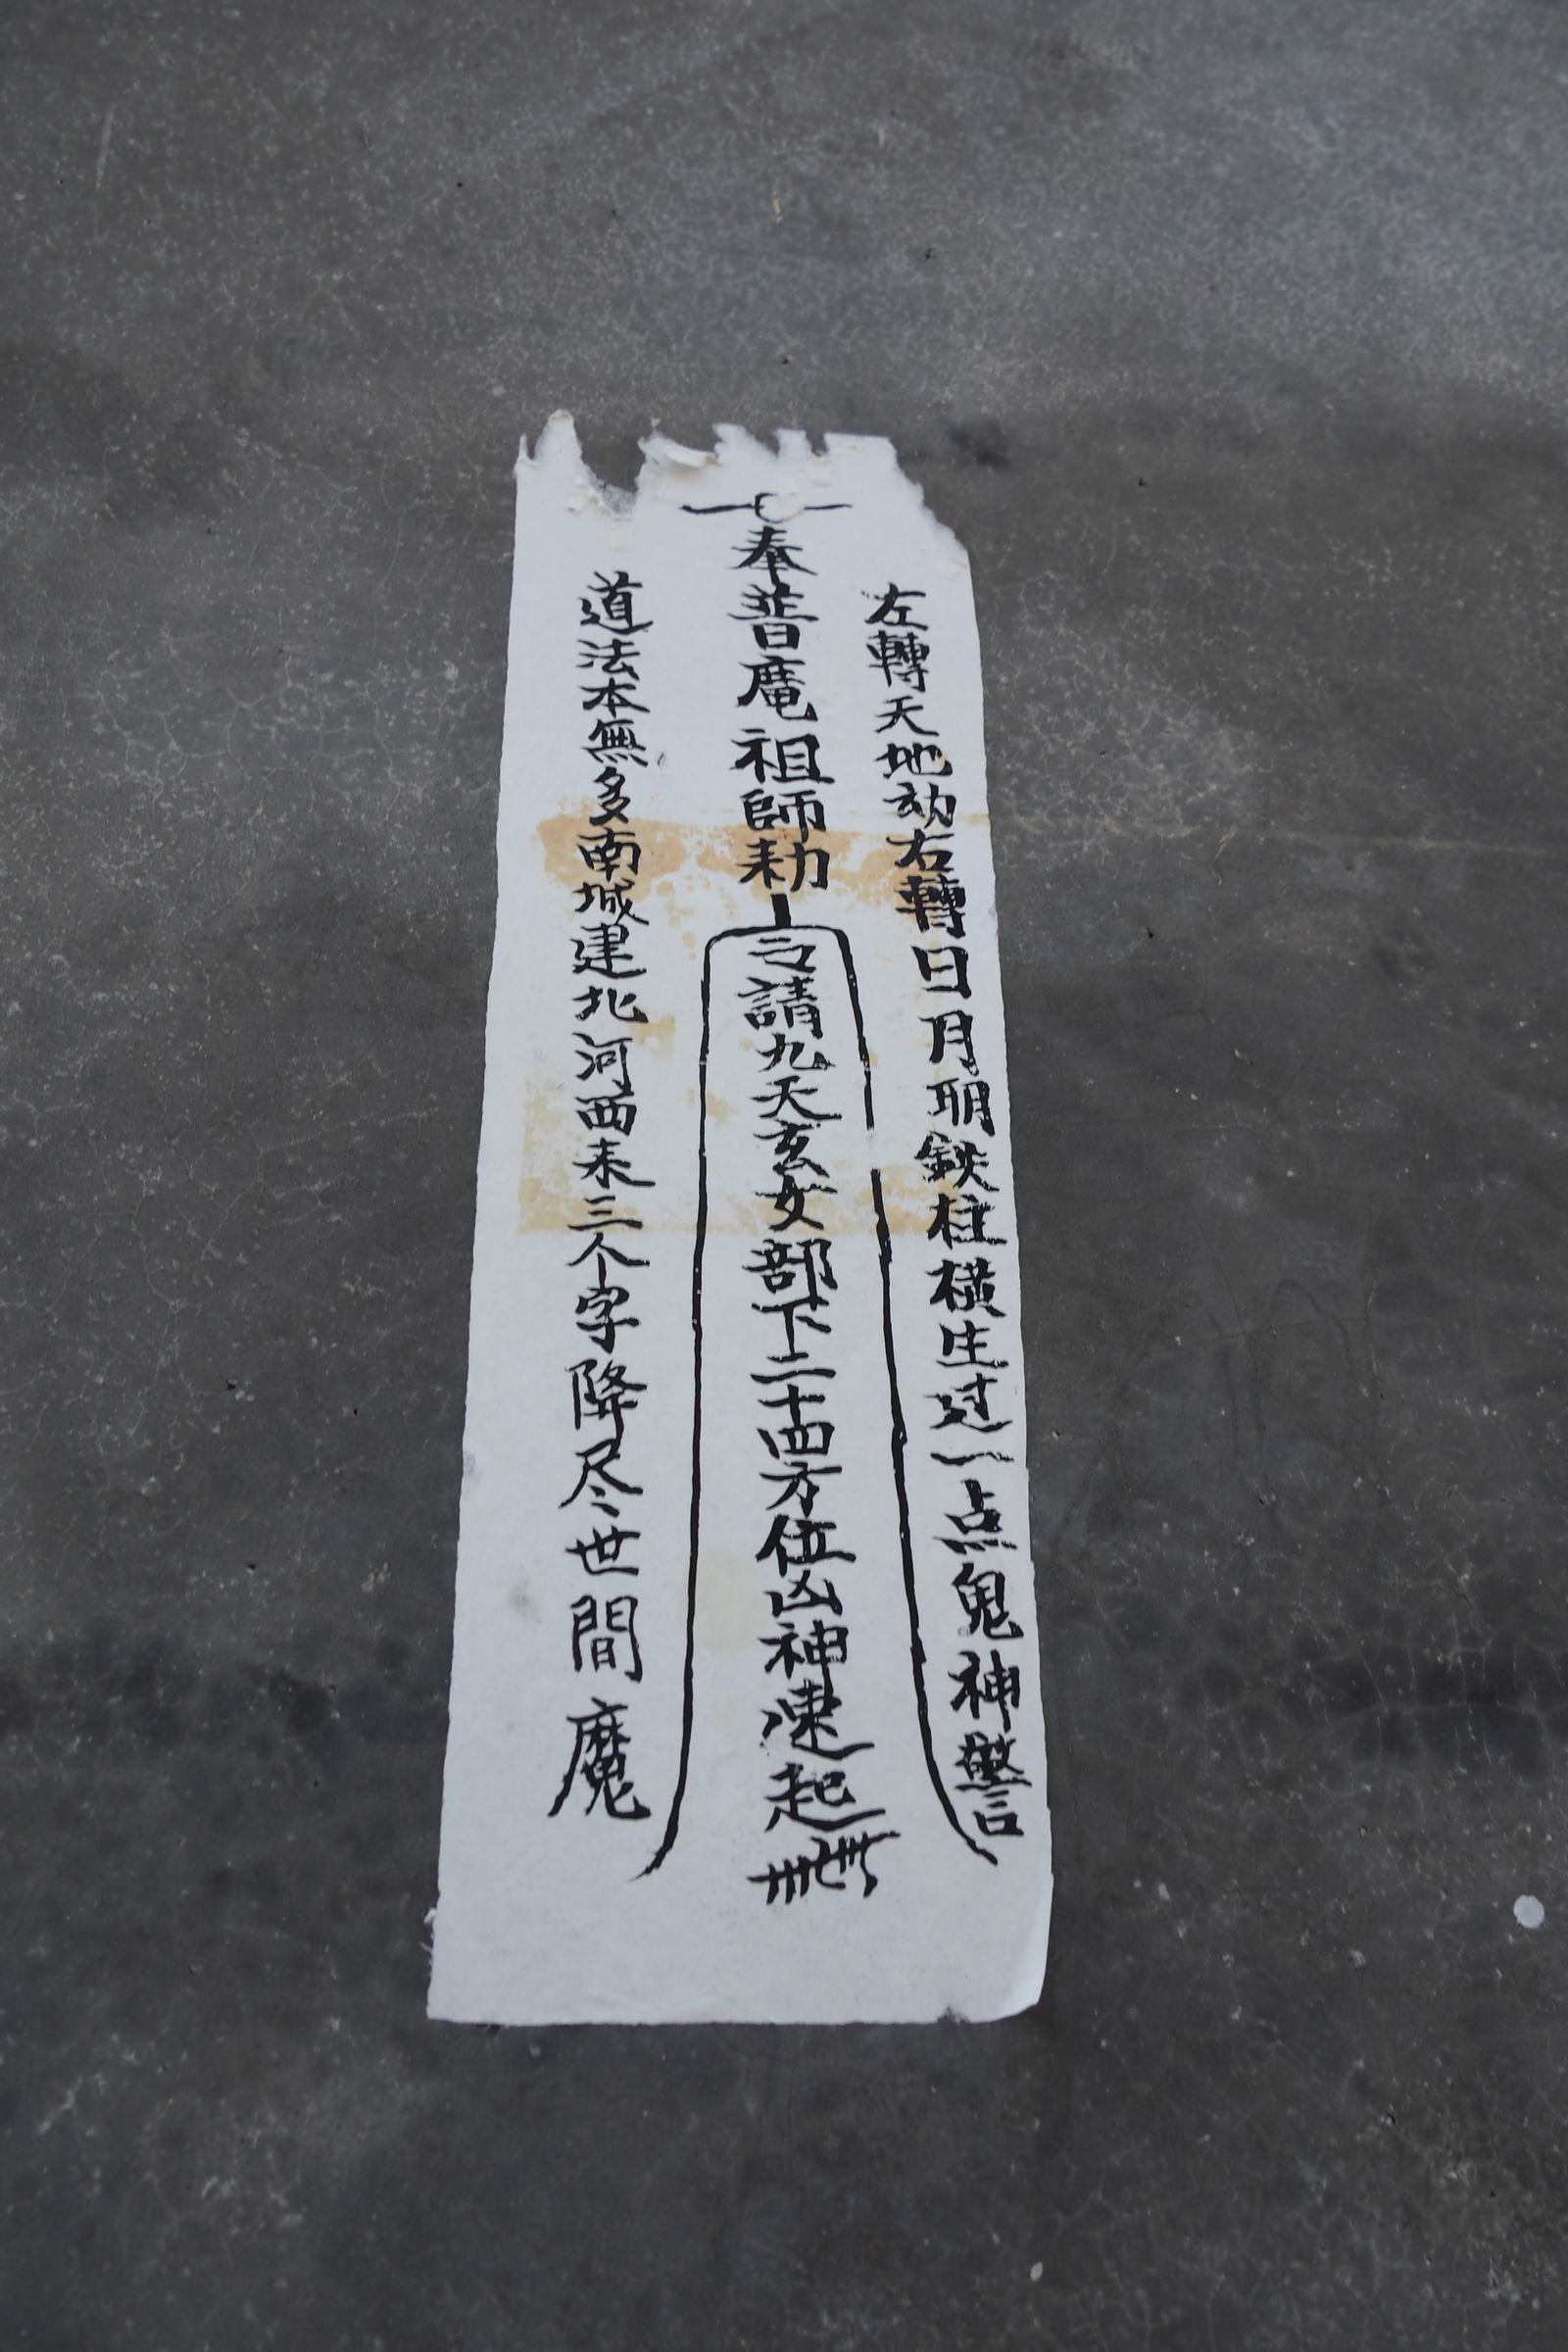 左轉天地动右轉日月明鉄柱横生过一点鬼神警
奉普庵祖師勅令請九天玄女部下二十四方位凶神速起
道法本無多南城建北河西来三个字降尽世間魔